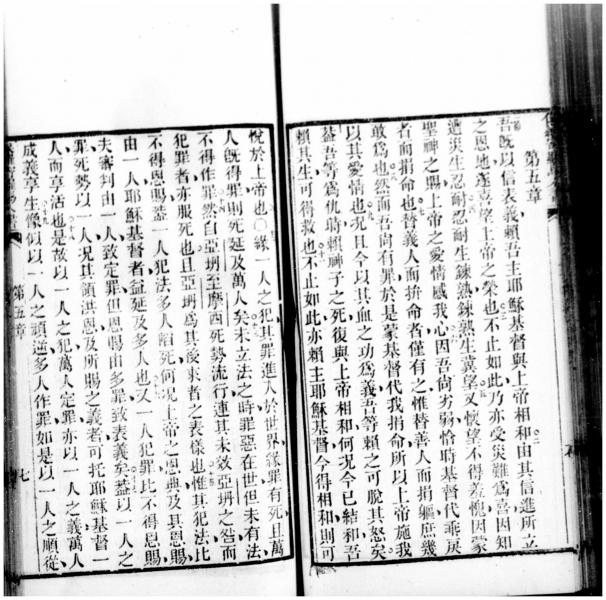 第五章
吾既以信表義賴吾主耶穌基督與上帝相和由其信進所立
之恩地遂喜望上帝之榮也不止如此乃亦受災難爲喜因知
遭災生忍耐忍耐生鍊熟鍊熟生冀望又懷望不得羞愧因蒙
聖神之賜上帝之愛情感我心因吾尚劣弱恰時基督代乖戾
者而捐命也替義人而拚命者僅有之惟替善人而捐軀庶幾
敢爲也然而吾尚有罪於是蒙基督代我捐命所以上帝施我
以其愛情也況且今以其血之功爲義吾等賴之可脫其怒矣
蓋吾等爲仇時賴神子之死復與上帝相和何況今已結和吾
賴其生可得救也不止如此亦賴主耶穌基督今得相和則可
悅於上帝也〇緣一人之犯其罪進入於世界緣罪有死且萬
人既得罪則死延及萬人矣未立法之時罪惡在世但未有法
不得作罪然自亞坍至摩西死勢流行連其未效亞坍之咎而
犯罪者亦服死也且亞坍爲其後來者之表樣也惟其犯法比
不得恩賜蓋一人犯法多人陷死何況上帝之恩典及其恩賜
由一人耶穌基督者益延及多人也又一人犯罪比不得恩賜
夫審判由一人致定罪但恩賜由多罪致表義矣蓋以一人之
罪死勢以一人況其領洪恩及所賜之義者可托耶穌基督一
人而享活也是故以一人之犯萬人定罪亦以一人之義萬人
成義享生像似以一人之頑逆多人作罪如是以一人之順從
第五章
七